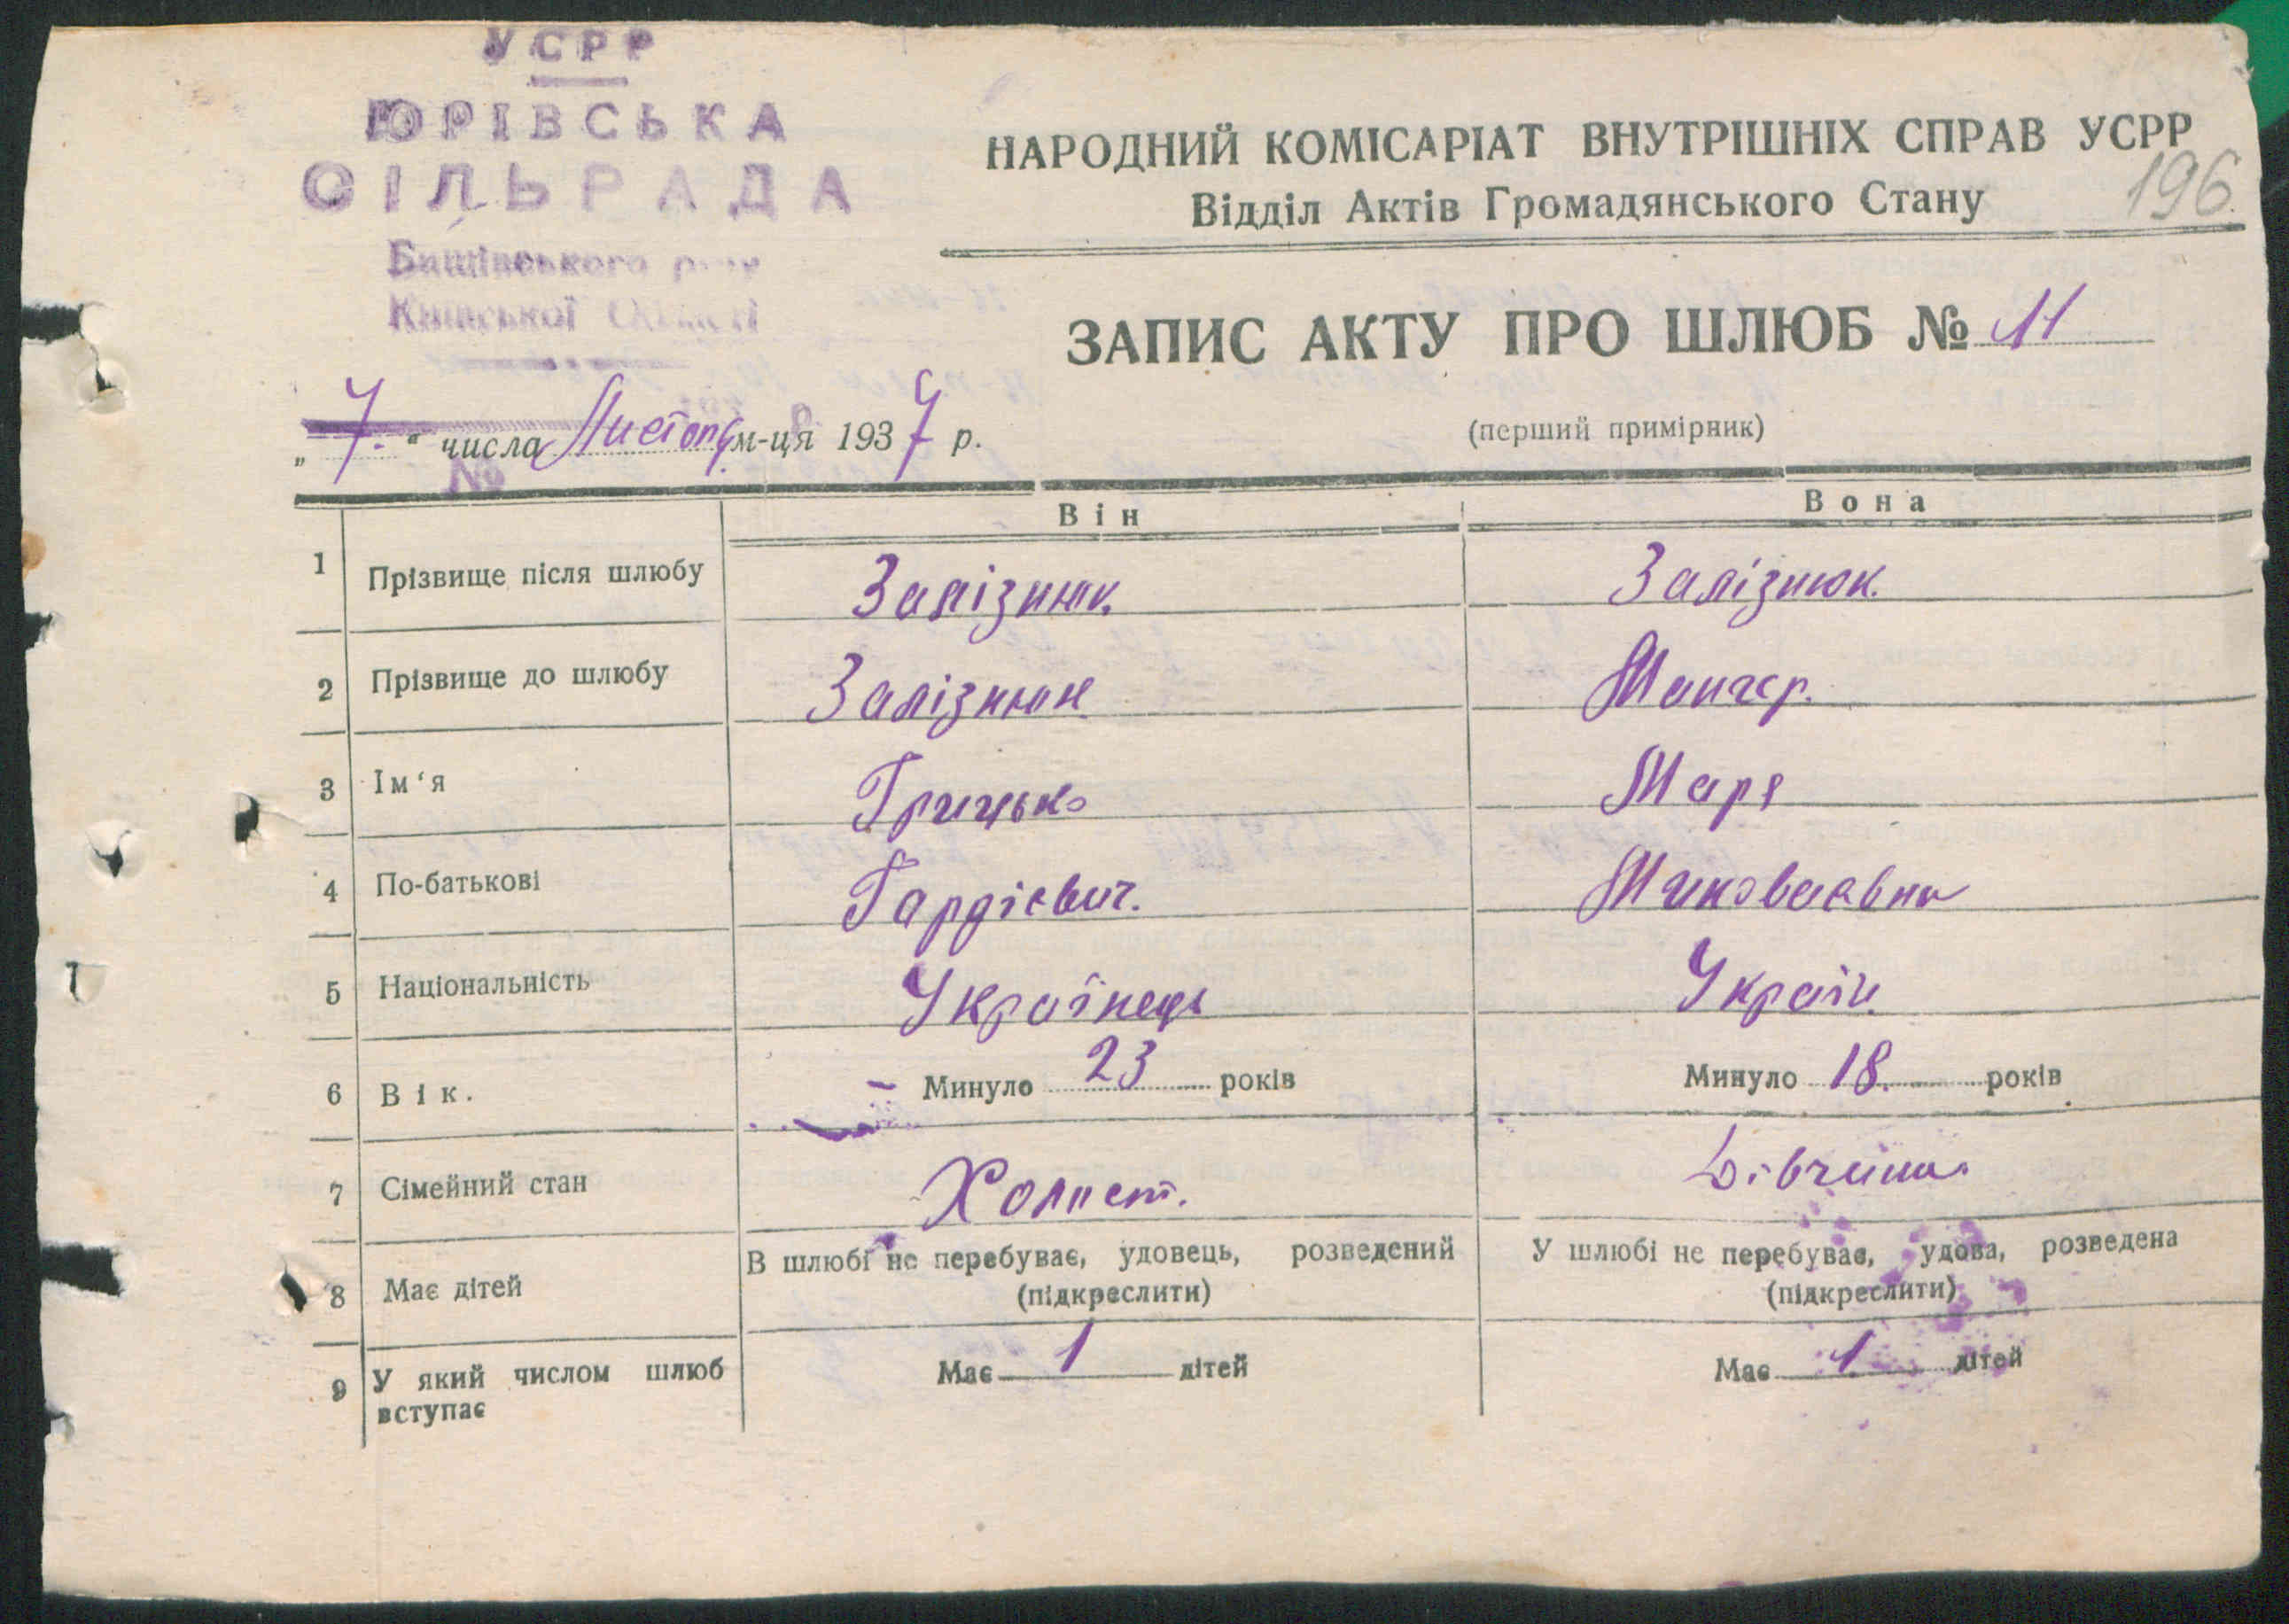 УСРР
ЮРІВСЬКА
СІЛЬРАДА
Бишівського р-ну
Київської Області
НАРОДНИЙ КОМІСАРІАТ ВНУТРІШНІХ СПРАВ УСРР
Відділ Актів Громадянського Стану
196
ЗАПИС АКТУ ПРО ШЛЮБ № 11
(перший примірник)
„7.“ числа Листоп. м-ця 1937 р.
№
Він
Вона
1 Прізвище після шлюбу Залізнюк. Залізнюк.
2 Прізвище до шлюбу Залізнюк
3 Ім‘я Грицько Маря
4 По-батькові Гордієвич. Миколаевна
5 Національність Українець Україн.
6 Вік. Минуло 23 років Минуло 18. років
7 Сімейний стан Холост. Дівчина
8 Має дітей В шлюбі не перебуває, удовець, розведений (підкреслити) У шлюбі не перебуває, удова, розведена (підкреслити)
9 У який числом шлюб Має 1 дітей Має 1 дітей
вступає